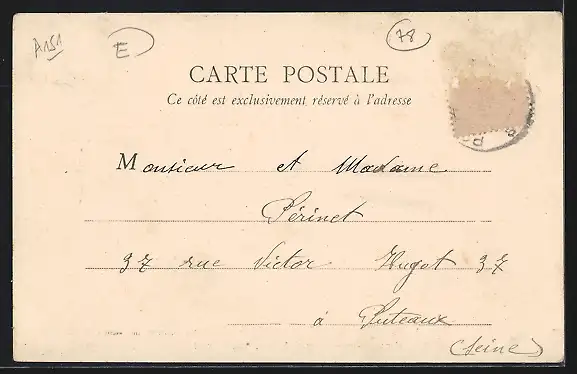 A151
E
78
CARTE POSTALE
Ce côté est exclusivement réservé à l'adresse
Monsieur et Madame
Périnet
37 rue Victor Hugot 37
à Puteaux
(Seine)